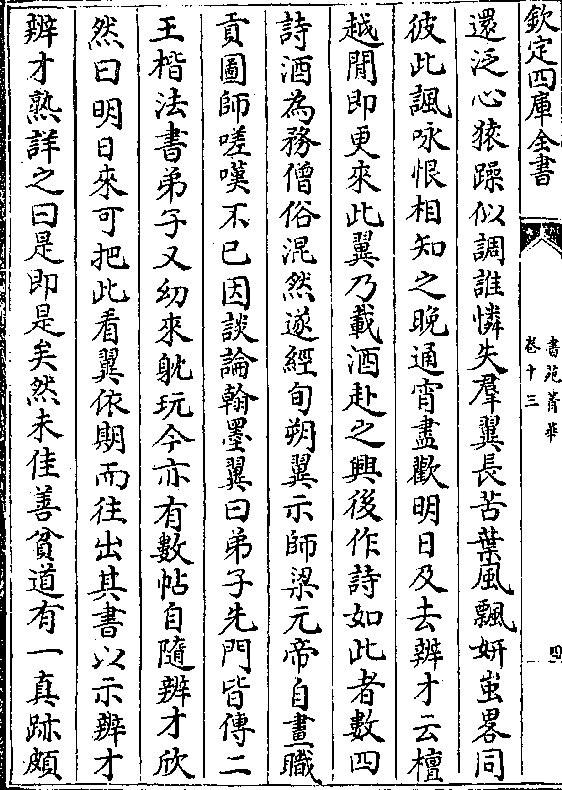 欽定四庫全書
書苑菁華
卷十三
四
還泛心猿躁似調誰憐失羣翼長苦葉風飄妍蚩畧同
彼此諷咏恨相知之晚通宵盡歡明日及去辨才云檀
越閒即更來此翼乃載酒赴之興後作詩如此者數四
詩酒為務僧俗混然遂經旬朔翼示師梁元帝自畫職
貢圖師嗟嘆不已因談論翰墨翼曰弟子先門皆傳二
王楷法書弟子又幼來躭玩今亦有數帖自隨辨才欣
然曰明日來可把此看翼依期而往出其書以示辨才
辨才熟詳之曰是即是矣然未佳善貧道有一真跡頗